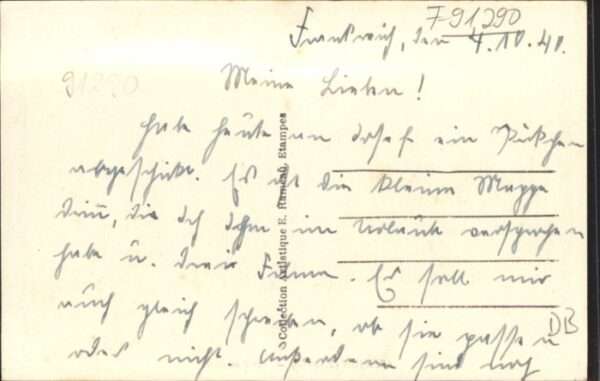 F 91290
Frankreich, den 4.10.40.
91290
Meine Lieben!
Habe heute an Josef ein Päckchen
abgeschickt. Es ist die kleine Mappe
drin, die ich ihm im Urlaub versprochen
habe u. drei Filme. Er soll mir
auch gleich schreiben, ob sie passen
oder nicht. Außerdem sind noch
DB
©Collection Artistique E. Rameau, Etampes